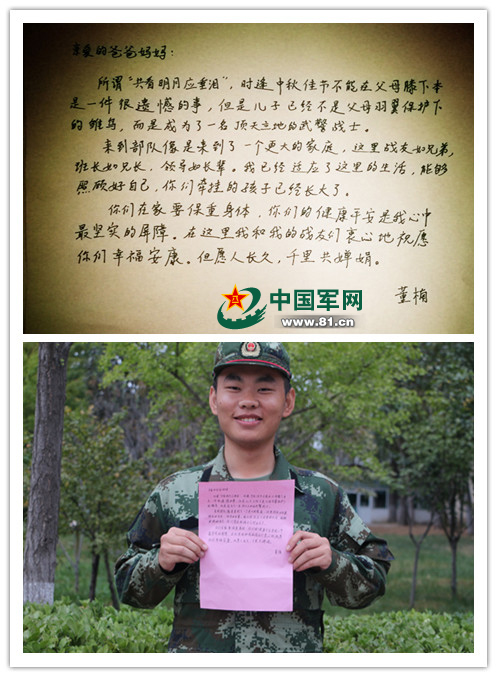 亲爱的爸爸妈妈:
所谓"共看明月应垂泪",时逢中秋佳节不能在父母膝下本
是一件很遗憾的事,但是儿子已经不是父母羽翼保护下
的雏鸟,而是成为了一名顶天立地的武警战士。
来到部队像是来到了一个更大的家庭,这里战友如兄弟,
班长如兄长,领导如长辈。我已经适应了这里的生活,能够
照顾好自己,你们牵挂的孩子已经长大了。
你们在家要保重身体,你们的健康平安是我心中
最坚实的屏障。在这里我和我的战友们衷心地祝愿
你们幸福安康。但愿人长久,千里共婵娟。
董楠
中国军网
www.81.cn